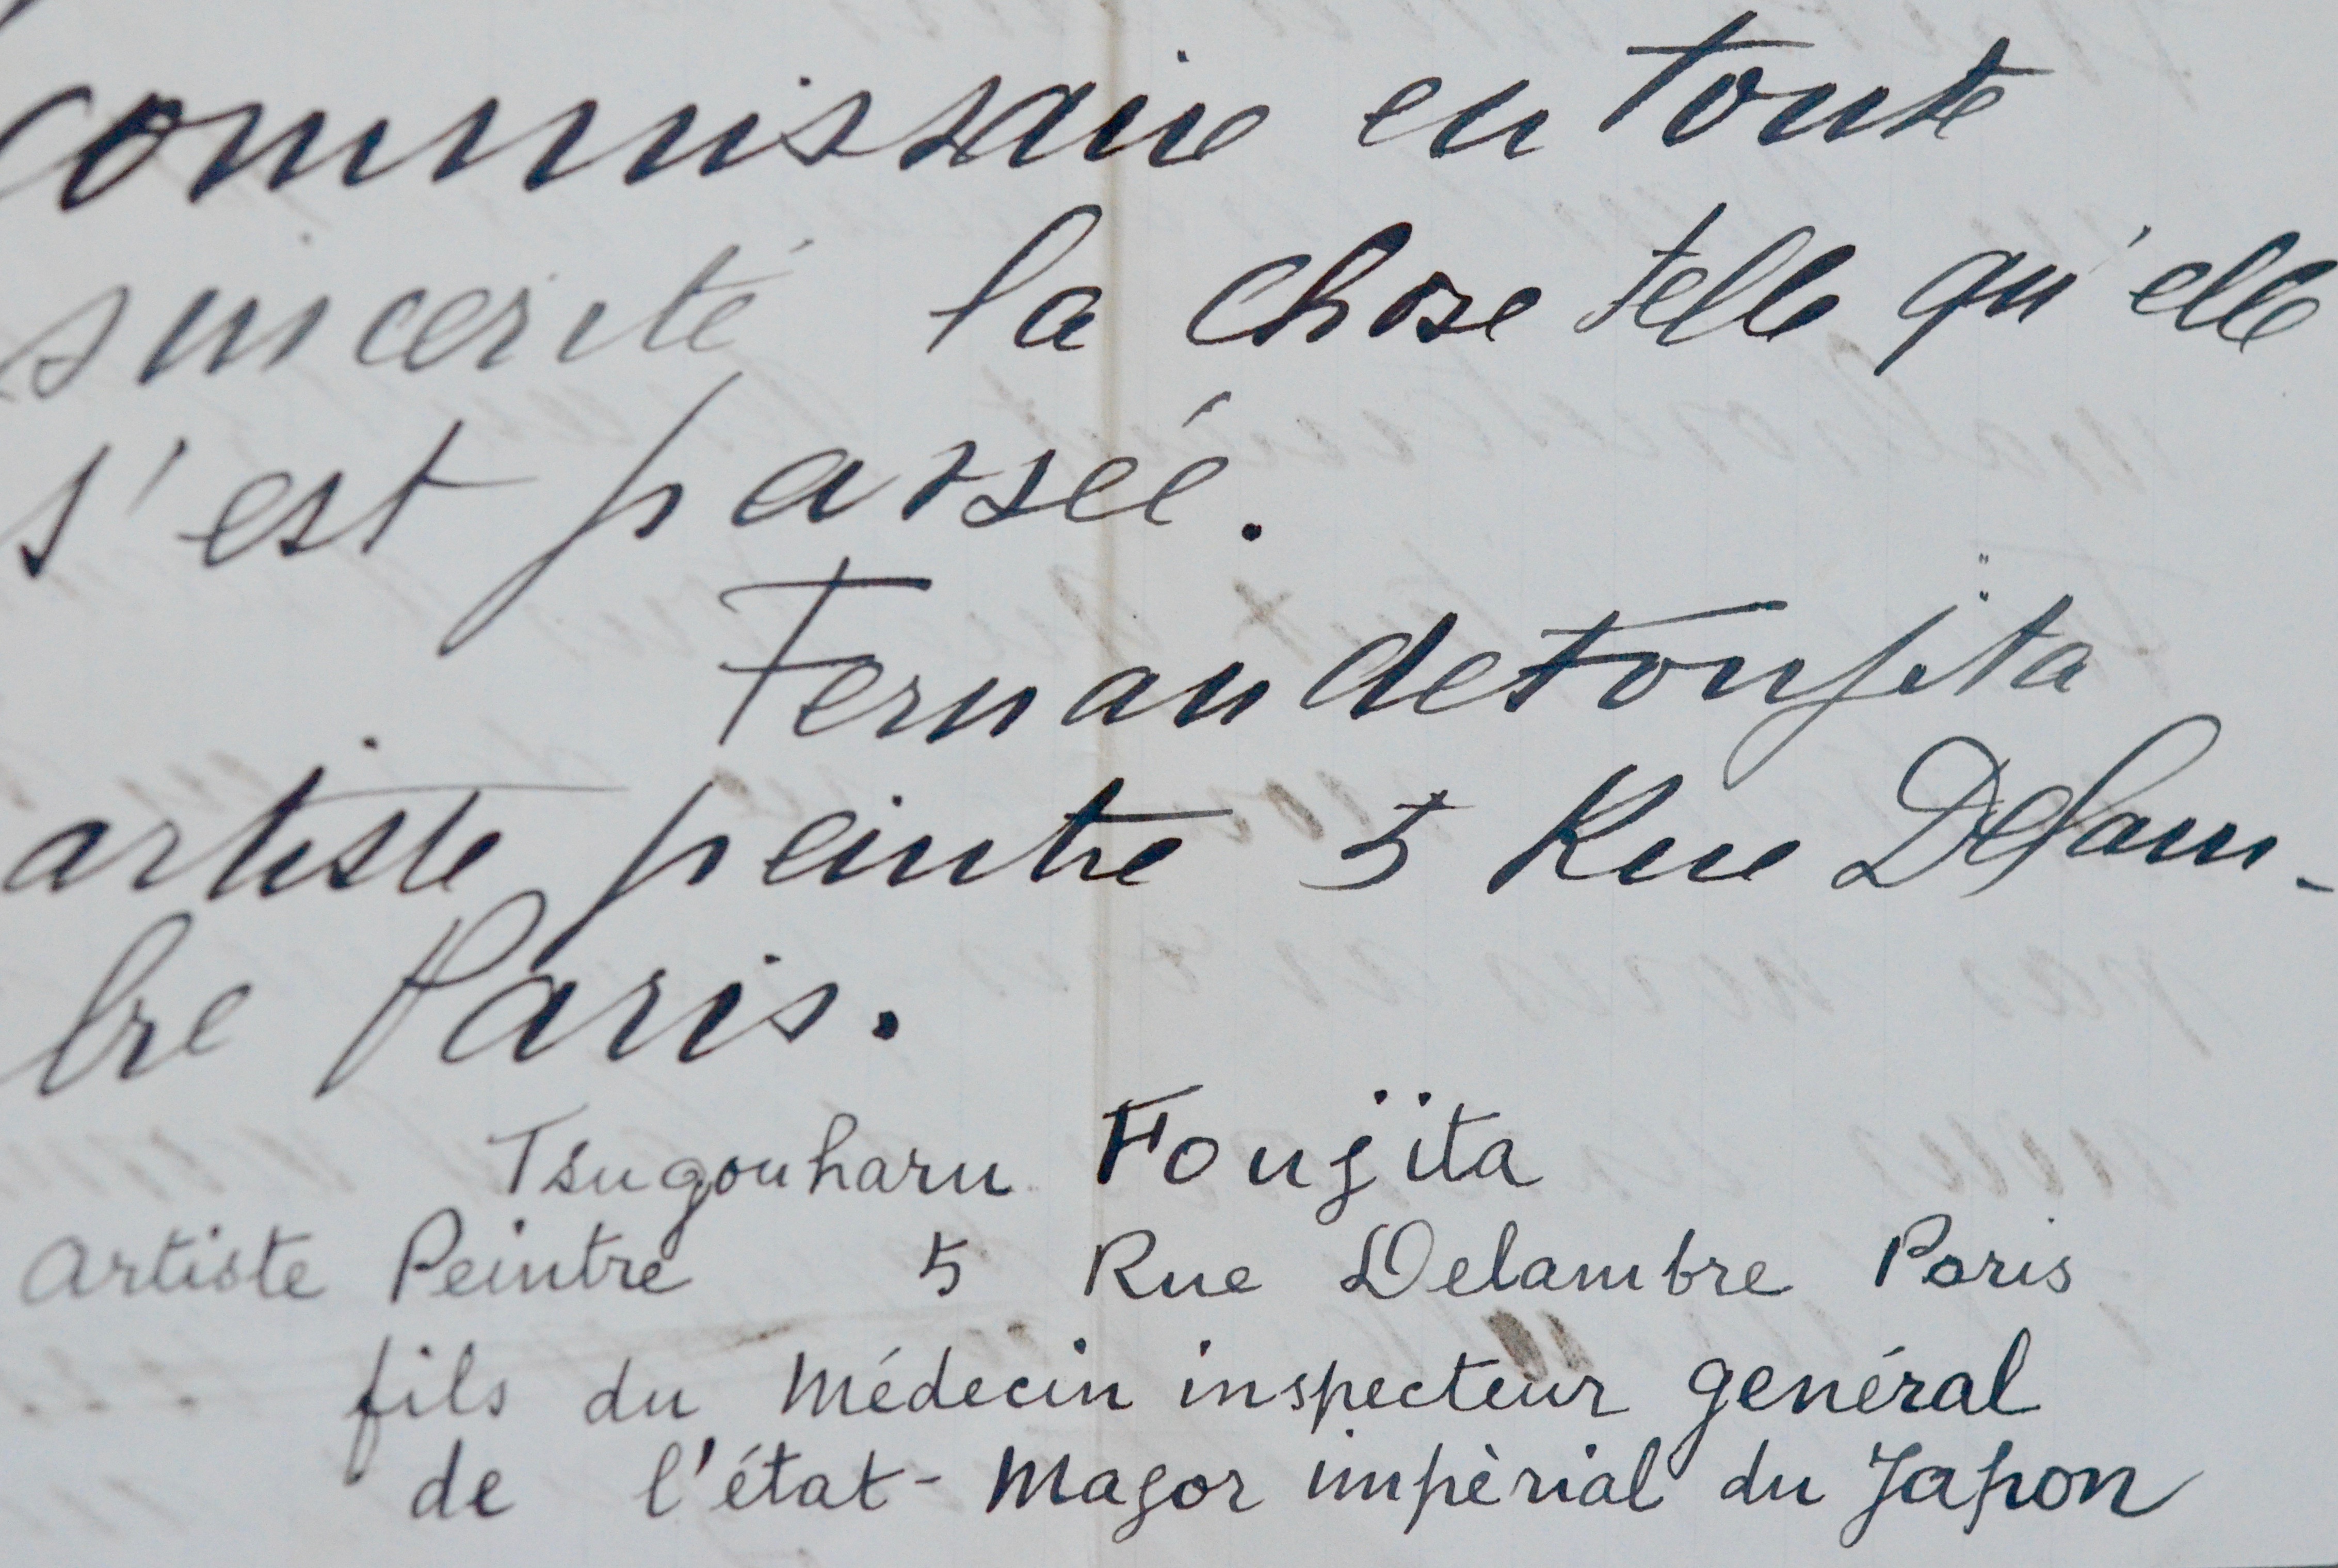 commissaire en toute
sincerité la chose telle qu'elle
s'est passeé.
Fernande Foujita
artiste peintre 5 Rue Delam-
bre Paris.
Tsugouharu Foujita
Artiste Peintre 5 Rue Delambre Paris
fils du Médecin inspecteur général
de l'état-Major impèrial du Japon